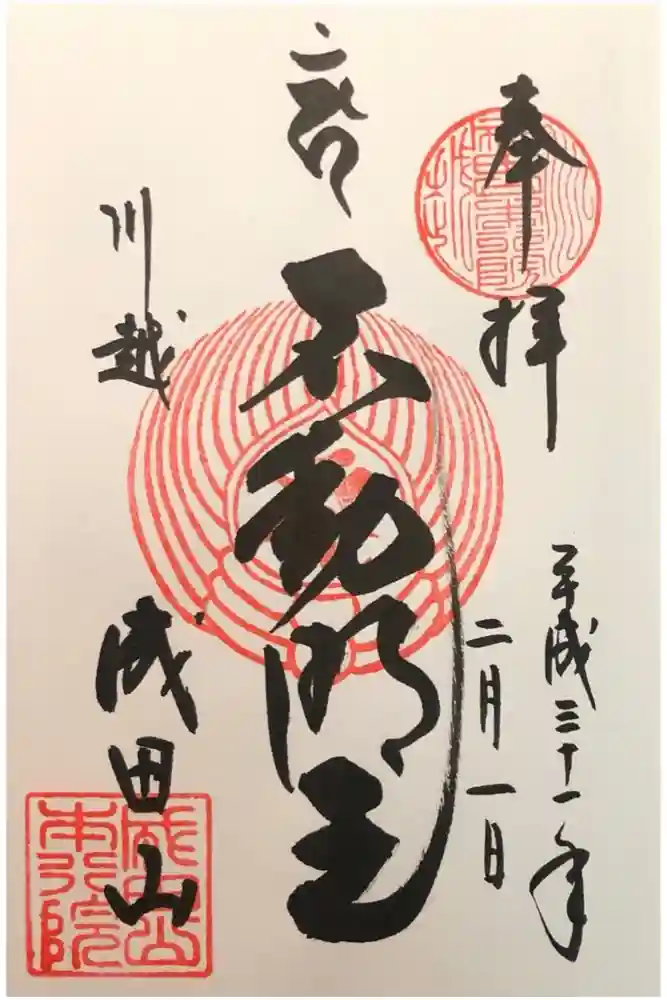 奉拝
平成三十一年
二月一日
不動明王
川越
成田山
成田山
本行院